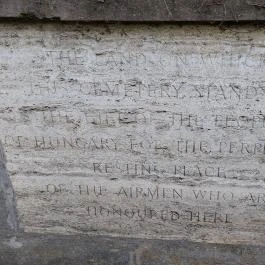 THE LAND ON WHICH
THIS CEMETERY STANDS
IS THE GIFT OF THE PEOPLE
OF HUNGARY FOR THE PERPE
RESTING PLACE
OF THE AIRMEN WHO AR
HONOURED HERE